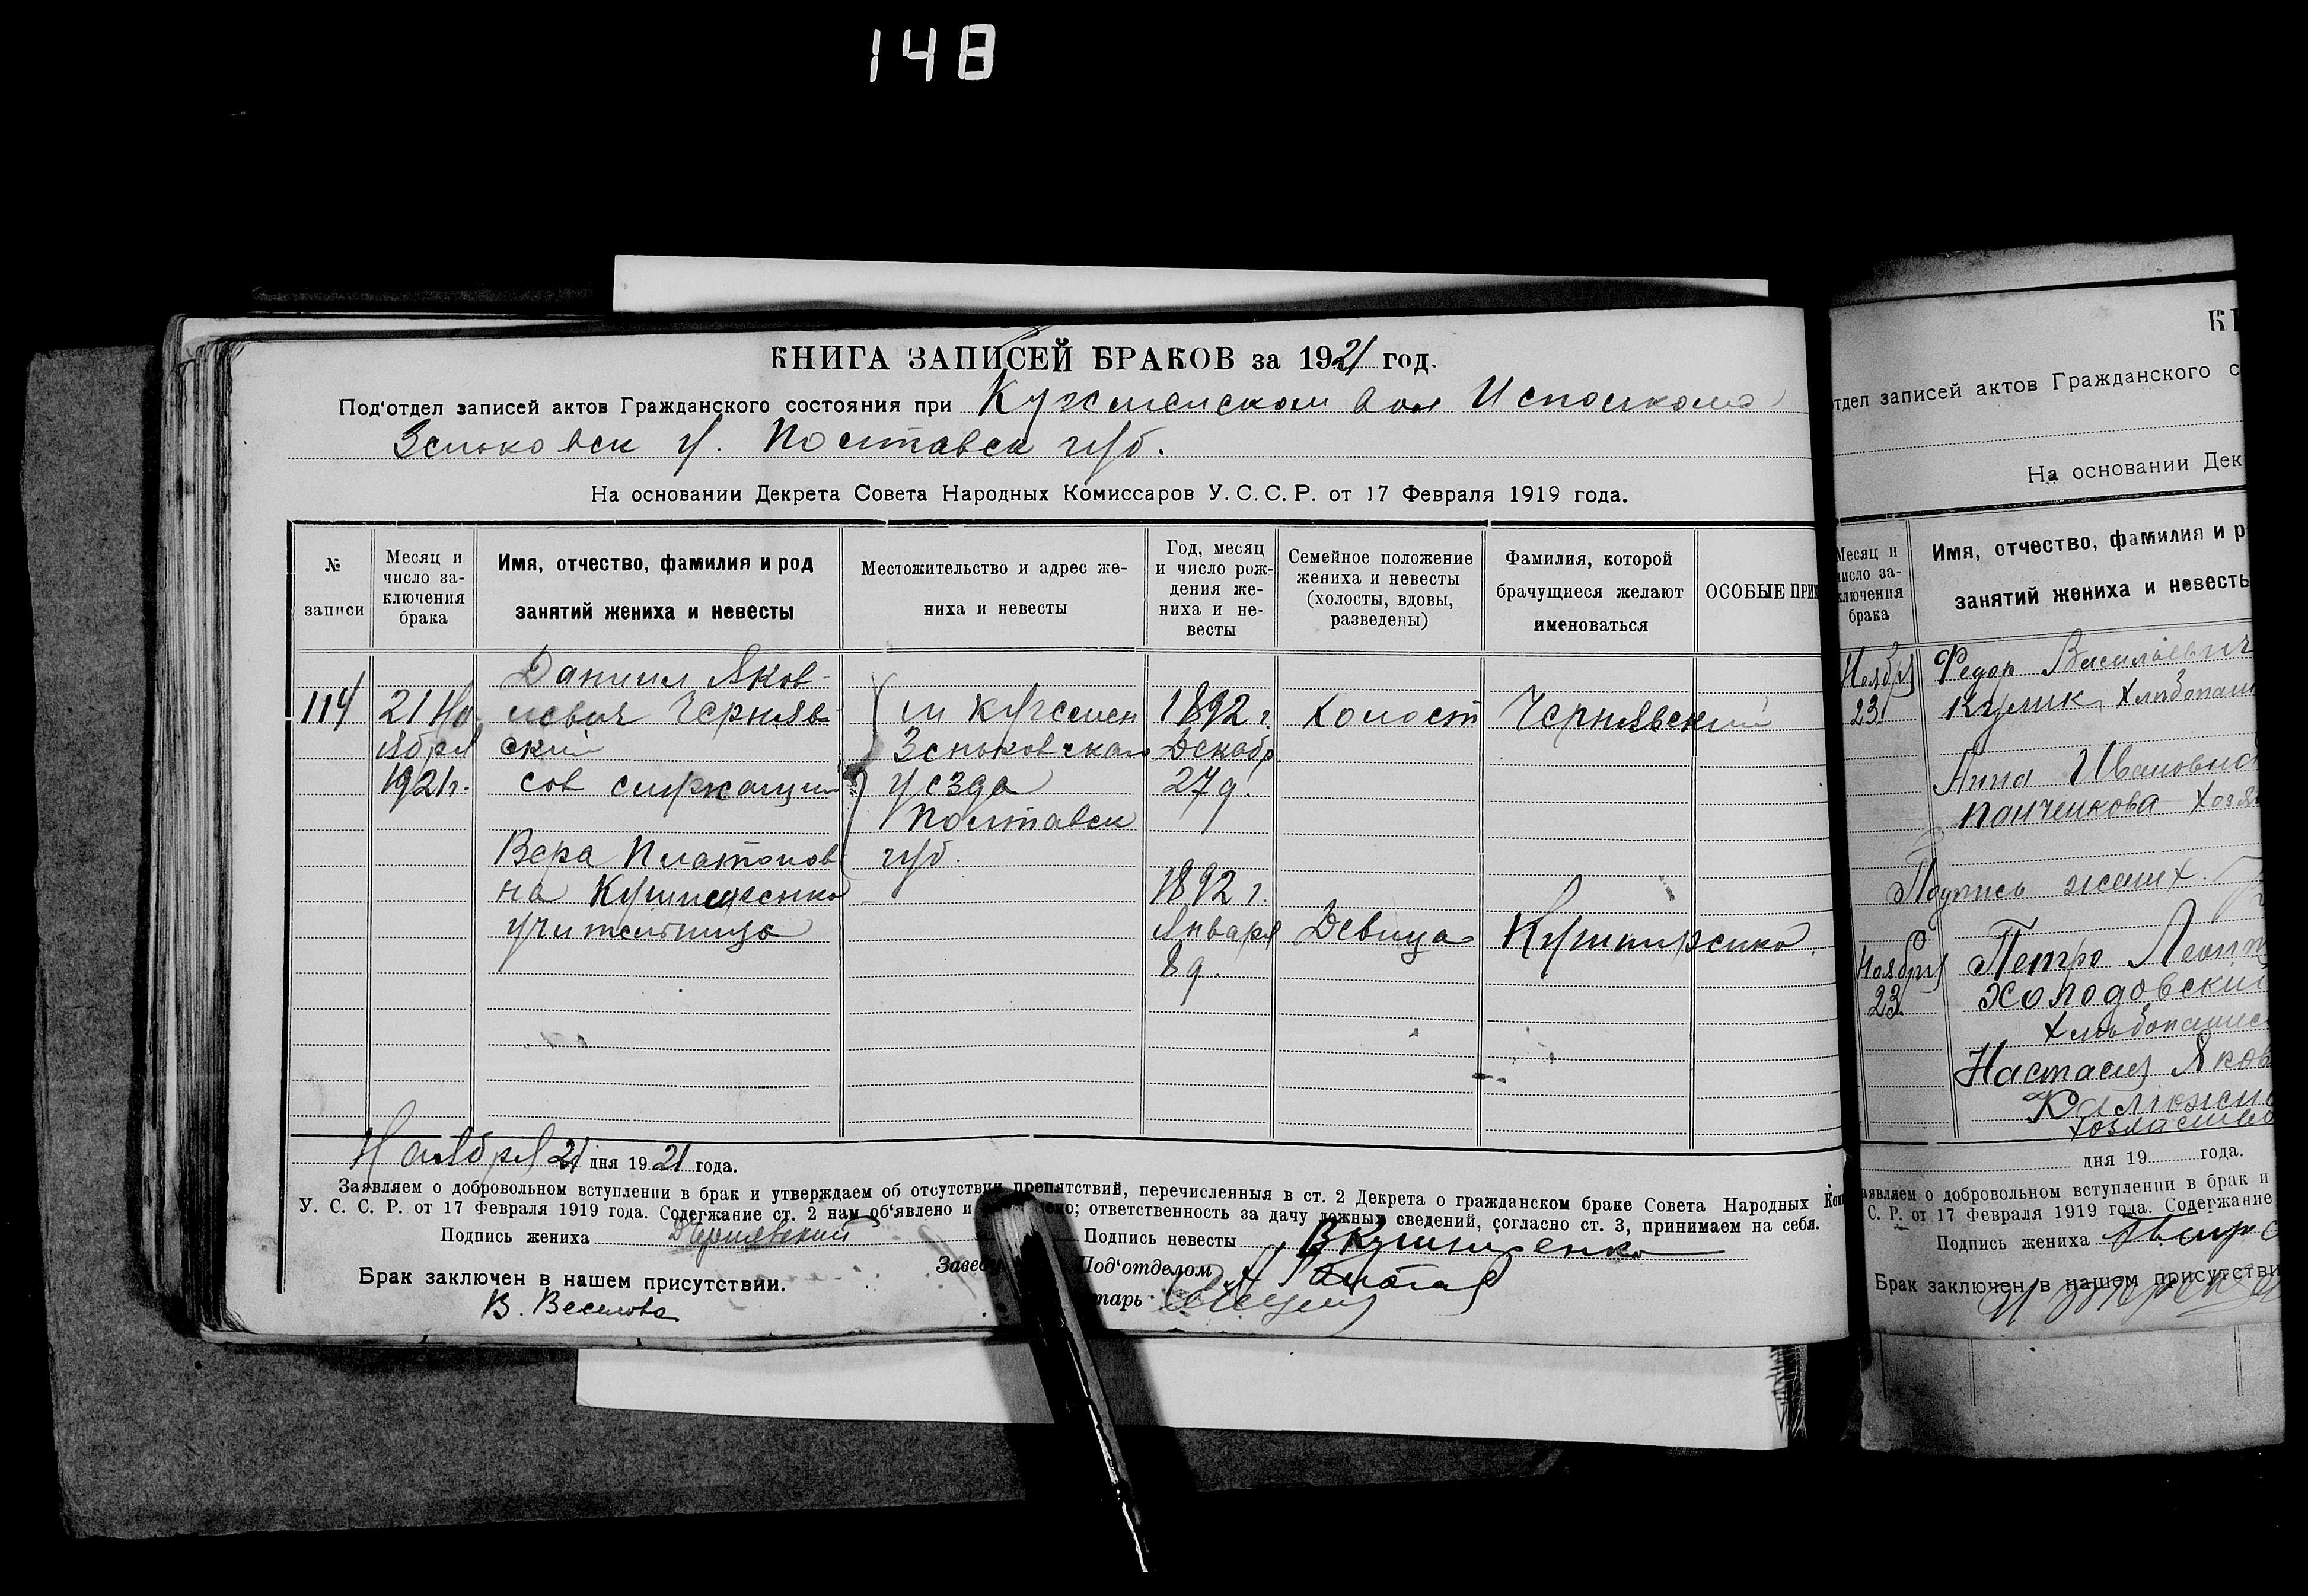 148
КНИГА ЗАПИСЕЙ БРАКОВ за 1921 год.
Под'отдел записей актов Гражданского состояния при Куземенском вол Исполкома
Зеньковск у. Полтавск губ.
На основании Декрета Совета Народных Комиссаров У. С. С. Р. от 17 Февраля 1919 года.
№ записи
Месяц и число за-
ключения
брака
Имя, отчество, фамилия и род
занятий жениха и невесты
Местожительство и адрес же-
ниха и невесты
Год, месяц
и число рож-
дения же-
ниха и не-
весты
Семейное положение
жениха и невесты
(холосты, вдовы,
разведены)
Фамилия, которой
брачущиеся желают
именоваться
ОСОБЫЕ ПРИМ
114
21 Но
ября
1921 г.
Даниил Яков-
левич Чернявс
ский
сов служащий
Вера Платонов
на
учительница
м Куземен
Зеньковскаго
уезда
Полтавск
губ.
1892 г
Декабр
27 д.
1892 г.
Января
8 д.
Холост
Девица
Чернявский
Кушниренко
Ноября 21 дня 1921 года.
Заявляем о добровольном вступлении в брак и утверждаем об отсутствии препятствий, перечисленныя в ст. 2 Декрета о гражданском браке Совета Народных Ком
У. С. С. Р. от 17 Февраля 1919 года. Содержание ст. 2 нам об'явлено и ответственность за дачу ложных сведений, согласно ст. 3, принимаем на себя.
Подпись жениха ДЧернявский
Подпись невесты ВКушниренко
Заве Под'отделом
Брак заключен в нашем присутствии.
тарь
В. Веселова
КН
отдел записей актов Гражданского с
На основании Дек
Месяц и
число за-
ключения
брака
Имя, отчество, фамилия и р
занятий жениха и невесты
Ноября
23
Федор Васильевич
Кулик хлебопаш
Анна Ивановна
Панченкова хозя
Подпись жених.
Ноября
23
Петро Леонт
Холодовский
хлебопашес
Настасия Яков
дня 19 года.
аявляем о добровольном вступлении в брак и
С. Р. от 17 Февраля 1919 года. Содержание
Подпись жениха
Брак заключен в нашем присутстви